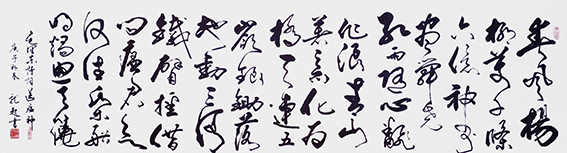 春风楊
柳萬千條
六億神州
盡舜堯
紅雨随心翻
作浪青山
着意化为
橋天連五
嶺銀鋤落
地动三河
鐵臂摇借
问瘟君欲
何往纸船
明燭照天燒
毛泽东诗词送瘟神
庚子
書